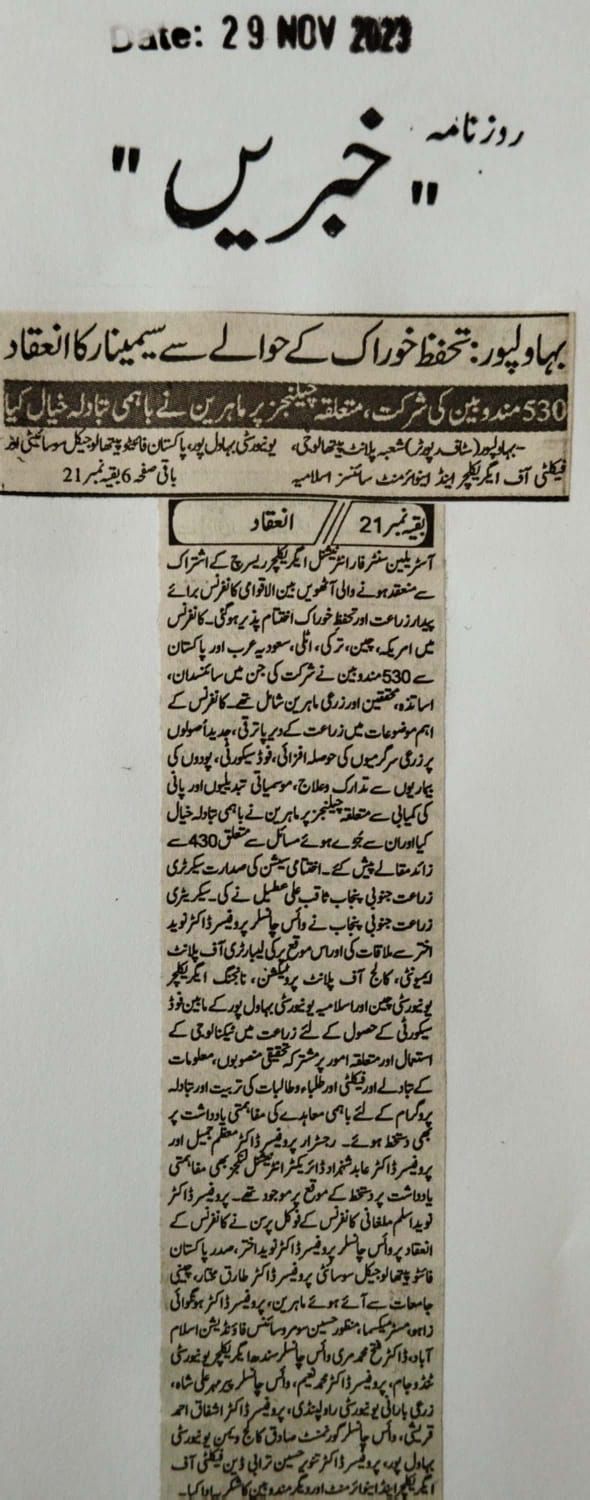 Date: 29 NOV 2023
روزنامہ
"خبریں"
بہاولپور: تحفظ خوراک کے حوالے سے سیمینار کا انعقاد
530 مندوبین کی شرکت، متعلقہ چیلنجز پر ماہرین نے باہمی تبادلہ خیال کیا
بہاولپور (سٹاف رپورٹر) شعبہ پلانٹ پیتھالوجی، یونیورسٹی بہاول پور، پاکستان فائٹو پیتھالوجیکل سوسائیٹی اور
فیکلٹی آف ایگریکلچر اینڈ اینوائرمنٹ سائنسز اسلامیہ باقی صفحہ 6 بقیہ نمبر 21
بقیہ نمبر 21 انعقاد
آسٹریلین سنٹر فار انٹرنیشنل ایگریکلچر ریسرچ کے اشتراک
سے منعقد ہونے والی آٹھویں بین الاقوامی کانفرنس برائے
پیدار زراعت اور تحفظ خوراک اختتام پذیر ہوگئی۔ کانفرنس
میں امریکہ، چین، ترکی، اٹلی، سعودیہ عرب اور پاکستان
سے 530 مندوبین نے شرکت کی جن میں سائنسدان،
اساتذہ، محققین اور زرعی ماہرین شامل تھے۔ کانفرنس کے
اہم موضوعات میں زراعت کے دیر پا ترقی، جدید اصولوں
پر زرعی سرگرمیوں کی حوصلہ افزائی، فوڈ سیکورٹی، پودوں کی
بیماریوں سے تدارک و علاج، موسمیاتی تبدیلیوں اور پانی
کی کمیابی سے متعلقہ چیلنجز پر ماہرین نے باہمی تبادلہ خیال
کیا اور ان سے جُڑے ہوئے مسائل سے متعلق 430 سے
زائد مقالے پیش کئے۔ اختتامی سیشن کی صدارت سیکرٹری
زراعت جنوبی پنجاب ثاقب علی عطیل نے کی۔ سیکریٹری
زراعت جنوبی پنجاب نے وائس چانسلر پروفیسر ڈاکٹر نوید
اختر سے ملاقات کی اور اس موقع پر کی لیبارٹری آف پلانٹ
ایمیونٹی، کالج آف پلانٹ پروٹیکشن، نانجنگ ایگریکلچر
یونیورسٹی چین اور اسلامیہ یونیورسٹی بہاول پور کے مابین فوڈ
سیکورٹی کے حصول کے لئے زراعت میں ٹیکنالوجی کے
استعمال اور متعلقہ امور پر مشترکہ تحقیقی منصوبوں، معلومات
کے تبادلے اور فیکلٹی اور طلباء و طالبات کی تربیت اور تبادلہ
پروگرام کے لئے باہمی معاہدے کی مفاہمتی یادداشت پر
بھی دستخط ہوئے۔ رجسٹرار پروفیسر ڈاکٹر معظم جمیل اور
پروفیسر ڈاکٹر عابد شہزاد ڈائریکٹر انٹرنیشنل لنکجز بھی مفاہمتی
یادداشت پر دستخط کے موقع پر موجود تھے۔ پروفیسر ڈاکٹر
نوید اسلم ملغانی کانفرنس کے فوکل پرسن نے کانفرنس کے
انعقاد پر وائس چانسلر پروفیسر ڈاکٹر نوید اختر، صدر پاکستان
فائٹو پیتھالوجیکل سوسائٹی پروفیسر ڈاکٹر طارق مختار، چینی
جامعات سے آئے ہوئے ماہرین، پروفیسر ڈاکٹر ہونگوائی
زاہو، مسٹر میکسما، منظور حسین سومرو سائنس فاؤنڈیشن اسلام
آباد، ڈاکٹر فتح محمد مری وائس چانسلر سندھ ایگریکلچر یونیورسٹی
ٹنڈو جام، پروفیسر ڈاکٹر محمد نعیم، وائس چانسلر پیر مہر علی شاہ،
زرعی بارانی یونیورسٹی راولپنڈی، پروفیسر ڈاکٹر اشفاق احمد
قریشی، وائس چانسلر گورنمنٹ صادق کالج ویمن یونیورسٹی
بہاول پور، پروفیسر ڈاکٹر تنویر حسین ترابی ڈین فیکلٹی آف
ایگریکلچر اینڈ اینوائرمنٹ اور دیگر مندوبین کا شکریہ ادا کیا۔